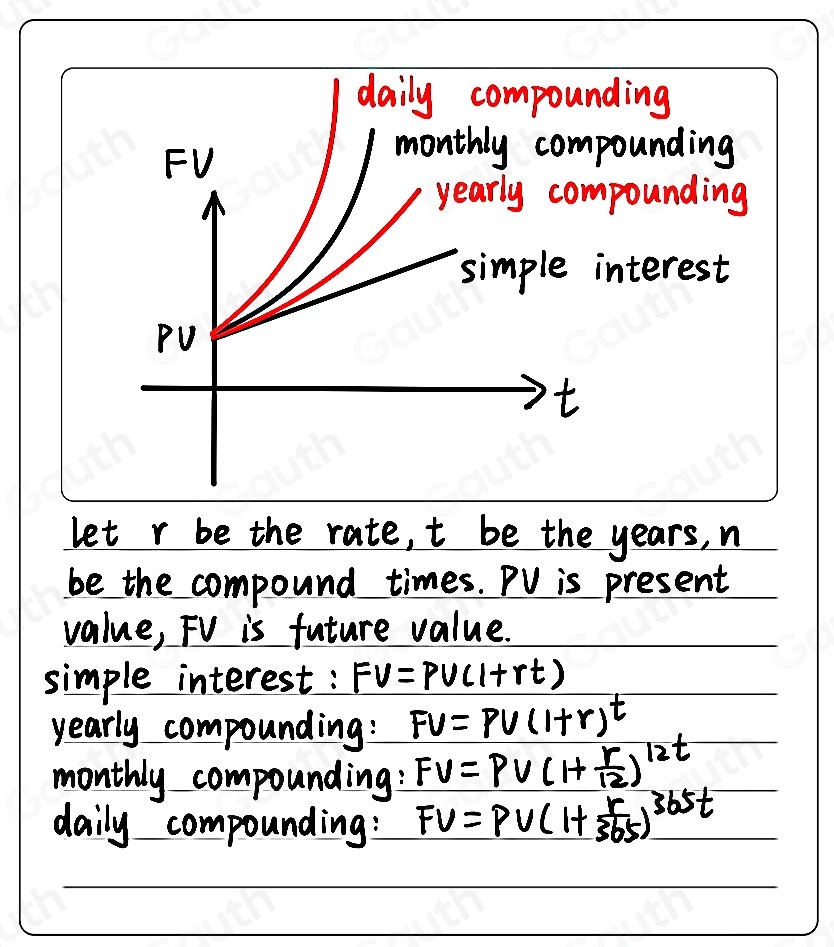 daily compounding
monthly compounding
FV
yearly compounding
simple interest
PV
t
let r be the rate, t be the years, n
be the compound times. PV is present
value, FV is future value.
simple interest : FV=PV(1+rt)
yearly compounding: FV=PV(1+r)^t
monthly compounding: FV=PV(1+r/12)^12t
daily compounding: FV=PV(1+r/365)^365t
Gauth